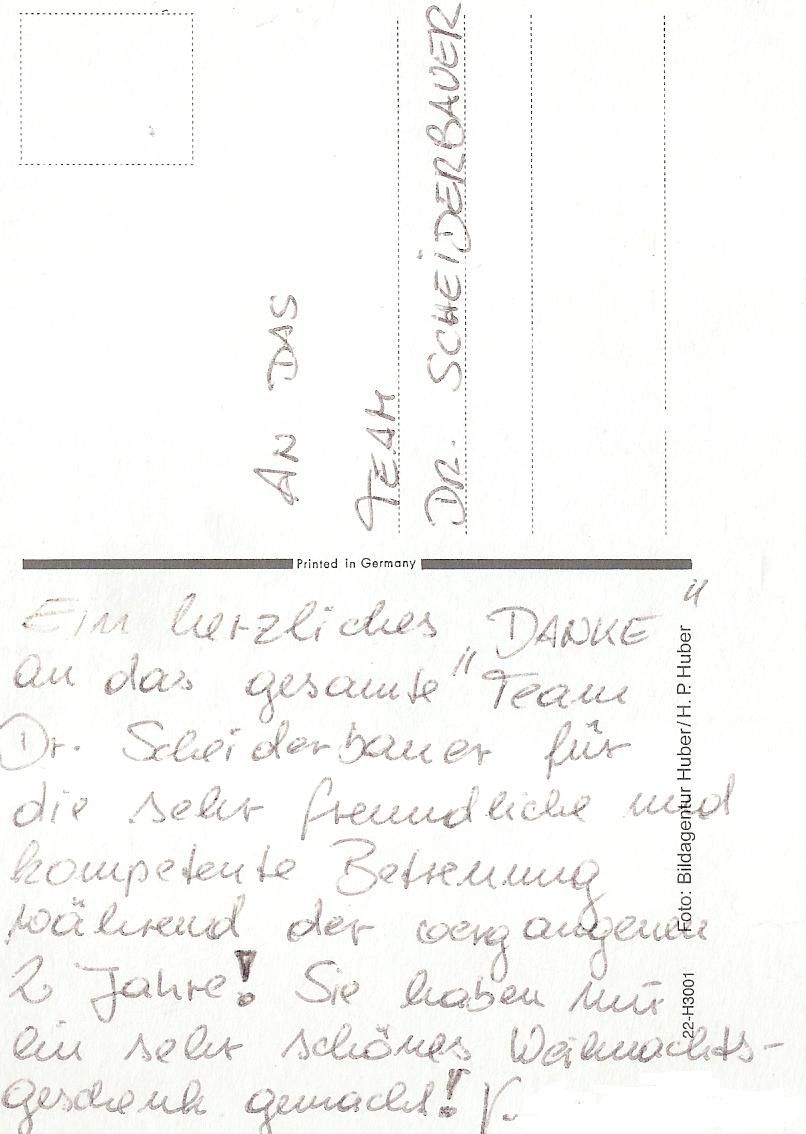 AN DAS
TEAM
DR. SCHEIDERBAUER
Printed in Germany
Ein herzliches „DANKE"
an das gesamte "Team
Dr. Scheiderbauer für
die sehr freundliche und
kompetente Betreuung
während der vergangenen
2 Jahre! Sie haben mir
ein sehr schönes Weihnachts-
geschenk gemacht! V.
22-H3001 Foto: Bildagentur Huber/H. P. Huber